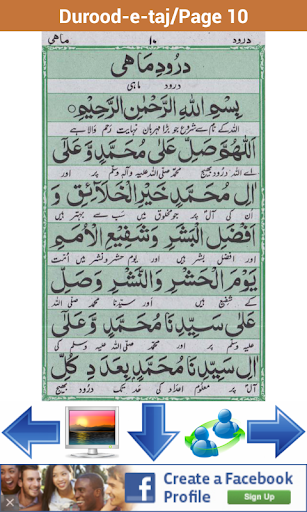 Durood-e-taj/Page 10
درود ۱۰ ماہی
درود ماہی
درود ماہی
بِسْمِ اللهِ الرَّحْمٰنِ الرَّحِيْمِ
اللہ کے نام سے شروع جو بڑا مہربان نہایت رحم والا ہے
اَللّٰهُمَّ صَلِّ عَلٰى مُحَمَّدٍ وَّعَلٰى
اے اللہ درود بھیج محمد صلی اللہ علیہ وسلم پر اور
اٰلِ مُحَمَّدٍ خَيْرِ الْخَلَآئِقِ وَ
ان کی آل پر جو مخلوق میں سب سے بہتر ہیں
اَفْضَلِ الْبَشَرِ وَشَفِيْعِ الْاُمَمِ
اور افضل بشر ہیں اور یوم حشر و نشر میں امت
يَوْمَ الْحَشْرِ وَالنَّشْرِ وَصَلِّ
کے شفیع ہیں اور سیدنا محمد صلی اللہ
عَلٰى سَيِّدِنَا مُحَمَّدٍ وَّعَلٰٓى
علیہ وسلم پر اور محمد صلی اللہ علیہ وسلم کی
اٰلِ سَيِّدِنَا مُحَمَّدٍ بِعَدَدِ كُلِّ
آل پر معلوم اعداد کی حد تک درود بھیج
Create a Facebook
Profile
Sign Up